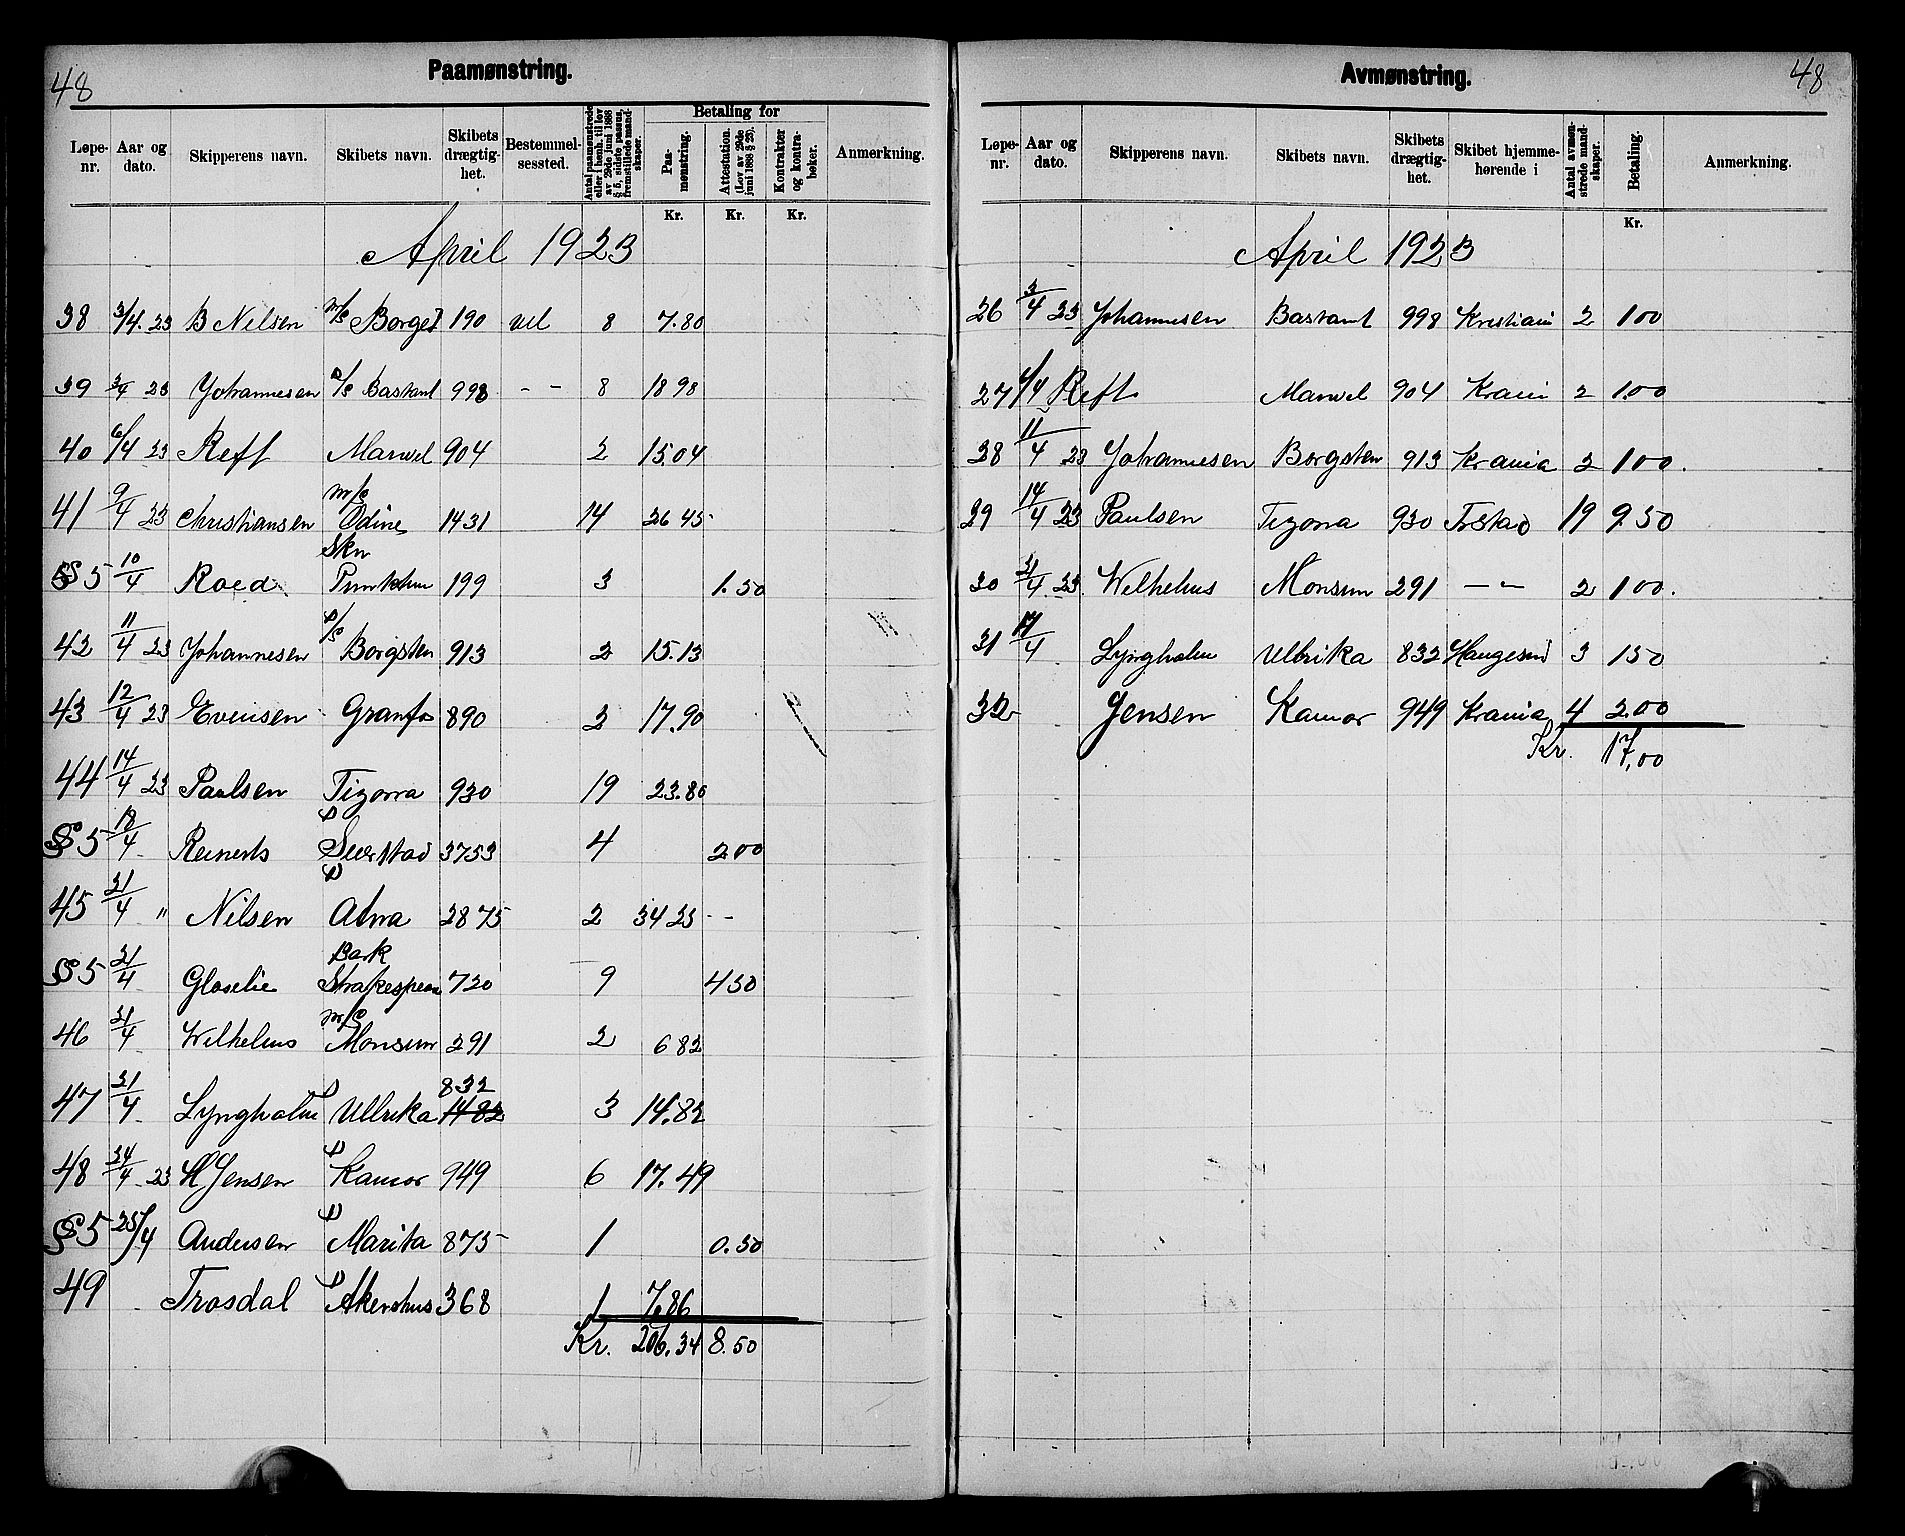 48
Paamønstring.
Løpe-nr. Aar og dato. Skipperens navn. Skibets navn. Skibets drægtig-het. Bestemmel-sessted. Antal paamønstrede eller i henh. til lov av 29de juni 1888 § 5, sidste passus, fremstillede mand-skaper. Betaling for Paa-mønstring. Attestation. (Lov av 29de juni 1888 § 25). Kontrakter og kontra-bøker. Anmerkning.
Kr. Kr. Kr.
April 1923
38 3/4. 23 B Nilsen m/s Borgej 190 ud 8 7.80
39 3/4 23 Yohannesen s/s Bastant 998 - - 8 18 98
40 6/4 23 Reft Marvel 904 2 15.04
41 9/4 23 Christiansen m/s Odine 1431 14 26 45
§ 5 10/4 Roed Skn 199 3 1.50
42 11/4 23 Yohannesen s/s Borgsten 913 2 15.13
43 12/4 23 Evensen Granfos 890 2 17.90
44 14/4 23 Paulsen Tizona 930 19 23.80
§ 5 18/4 Reinerts D Suerstad 3753 4 2 00
45 21/4 " Nilsen D Atna 2875 2 34 23 - -
§ 5 21/4 Gloselie Bark 720 9 4 50
46 21/4 Wilhelms m/s Monsun 291 2 6 82
47 21/4 Lyngholm D Ullrika 832 1482 3 14.82
48 24/4 23 H Jensen D Kamor 949 6 17.49
§ 5 25/4 Andersen D Marita 875 1 0.50
49 Trosdal D Akershus 368 1 7.86
Kr. 206.34 8.50
48
Avmønstring.
Løpe-nr. Aar og dato. Skipperens navn. Skibets navn. Skibets drægtig-het. Skibet hjemme-hørende i Antal avmøn-strede mand-skaper. Betaling. Anmerkning.
Kr.
April 1923
26 3/4 23 Yohannesen Bastant 998 Kristiani 2 1 00
27 6/4 Reft Marvel 904 Krani 2 1.00
28 11/4 23 Yohannesen Borgsten 913 Krania 2 1 00.
29 14/4 23 Paulsen Tizona 930 Trstad 19 9.50
30 21/4 23 Wilhelms Monsun 291 - " - 2 1 00.
31 Lyngholm Ullrika 832 Haugesund 3 1 50
32 Jensen Kamor 949 Krania 4 2.00
Kr. 17,00